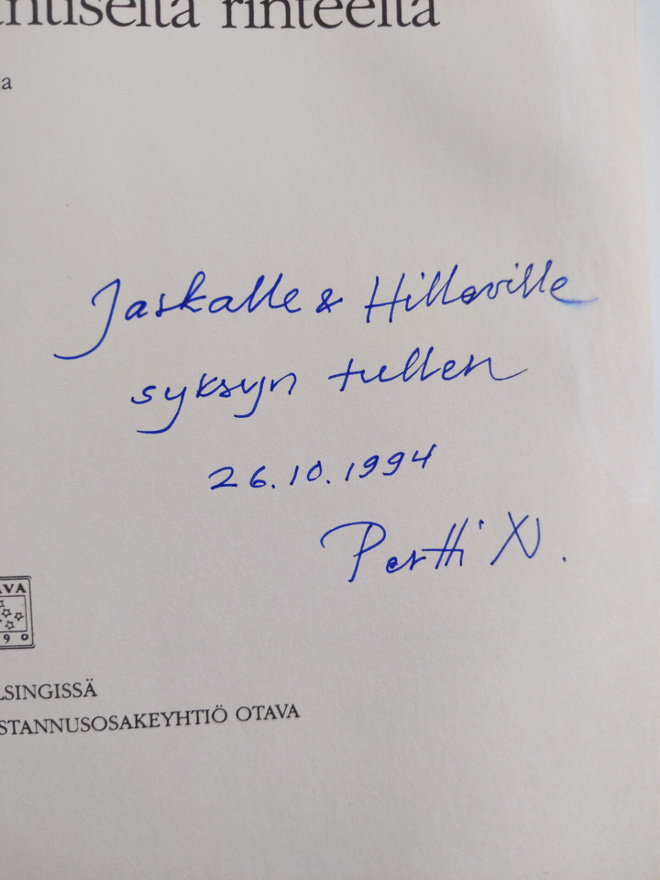 ntiselta rinteeltä
a
Jaskalle & Hillaville
syksyn tullen
26.10.1994
Pertti N.
AVA
90
LSINGISSÄ
STANNUSOSAKEYHTIÖ OTAVA